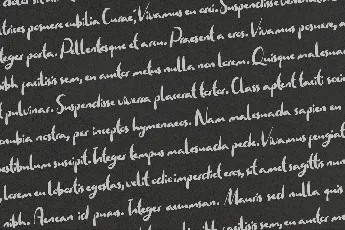 trices posuere cubilia Curae; Vivamus en orci. Suspendisse
teger porta. Pellentesque et arcu. Praesent a eros. Vivamus posuere,
nibh facilisis sem, en auctor metus nulla non lorem. Quisque malesuada
t pulvinar. Suspendisse viverra placerat tortor. Class aptent taciti soci
onubia nostra, per inceptos hymenaeos. Nam malesuada sapien en
estibulum suscipit. Integer tempus malesuada pede. Vivamus feugiat
, lorem eu lobortis egestas, velit odio imperdiet eros, sit amet sagittis nun
nibh. Aenean id purus. Integer accumsan. Mauris sed nulla quis
facilisis sem, en auctor me